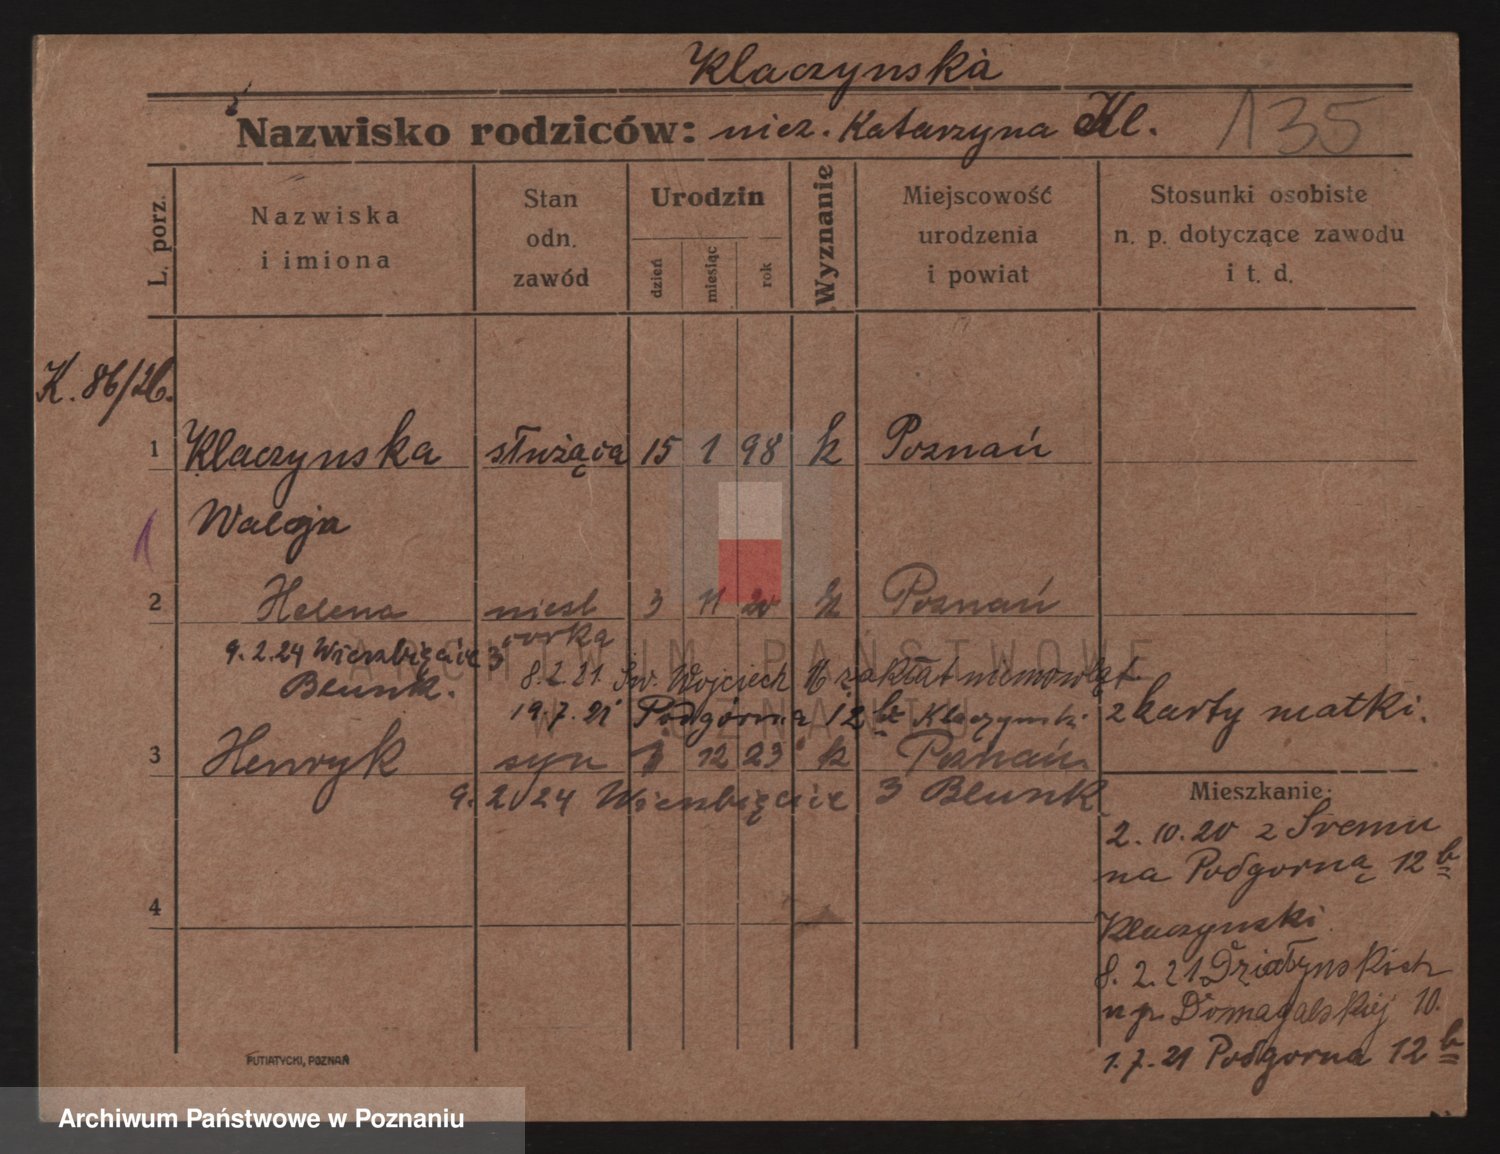 Klaczynska
Nazwisko rodziców: niez. Katarzyna Kl. 135
L. porz.
Nazwiska
i imiona
Stan
odn.
zawód
Urodzin
dzień
miesiąc
rok
Wyznanie
Miejscowość
urodzenia
i powiat
Stosunki osobiste
n. p. dotyczące zawodu
i t. d.
K. 86/26.
1 Klaczynska służąca 15 1 98 k Poznań
1
2 Helena 3 11 20 k Poznań
9.2.24 Wierzbięcice 3
Blunk.
8.2.21. Św. Wojciech zakłat niemowląt
19.7.21 Podgórna 12 b Klaczynski z karty matki.
3 Henryk syn 12 23 k Poznań
9.2.24 Wierzbięcice 3 Blunk
Mieszkanie:
2.10.20 z Śremu
na Podgorną 12 b
4
Klaczynski
8.2.21 Działynskich
np. Domagalskiej 10.
1.7.21 Podgorna 12 b
PUTIATYCKI, POZNAŃ
ARCHIWUM PAŃSTWOWE
W POZNANIU
Archiwum Państwowe w Poznaniu